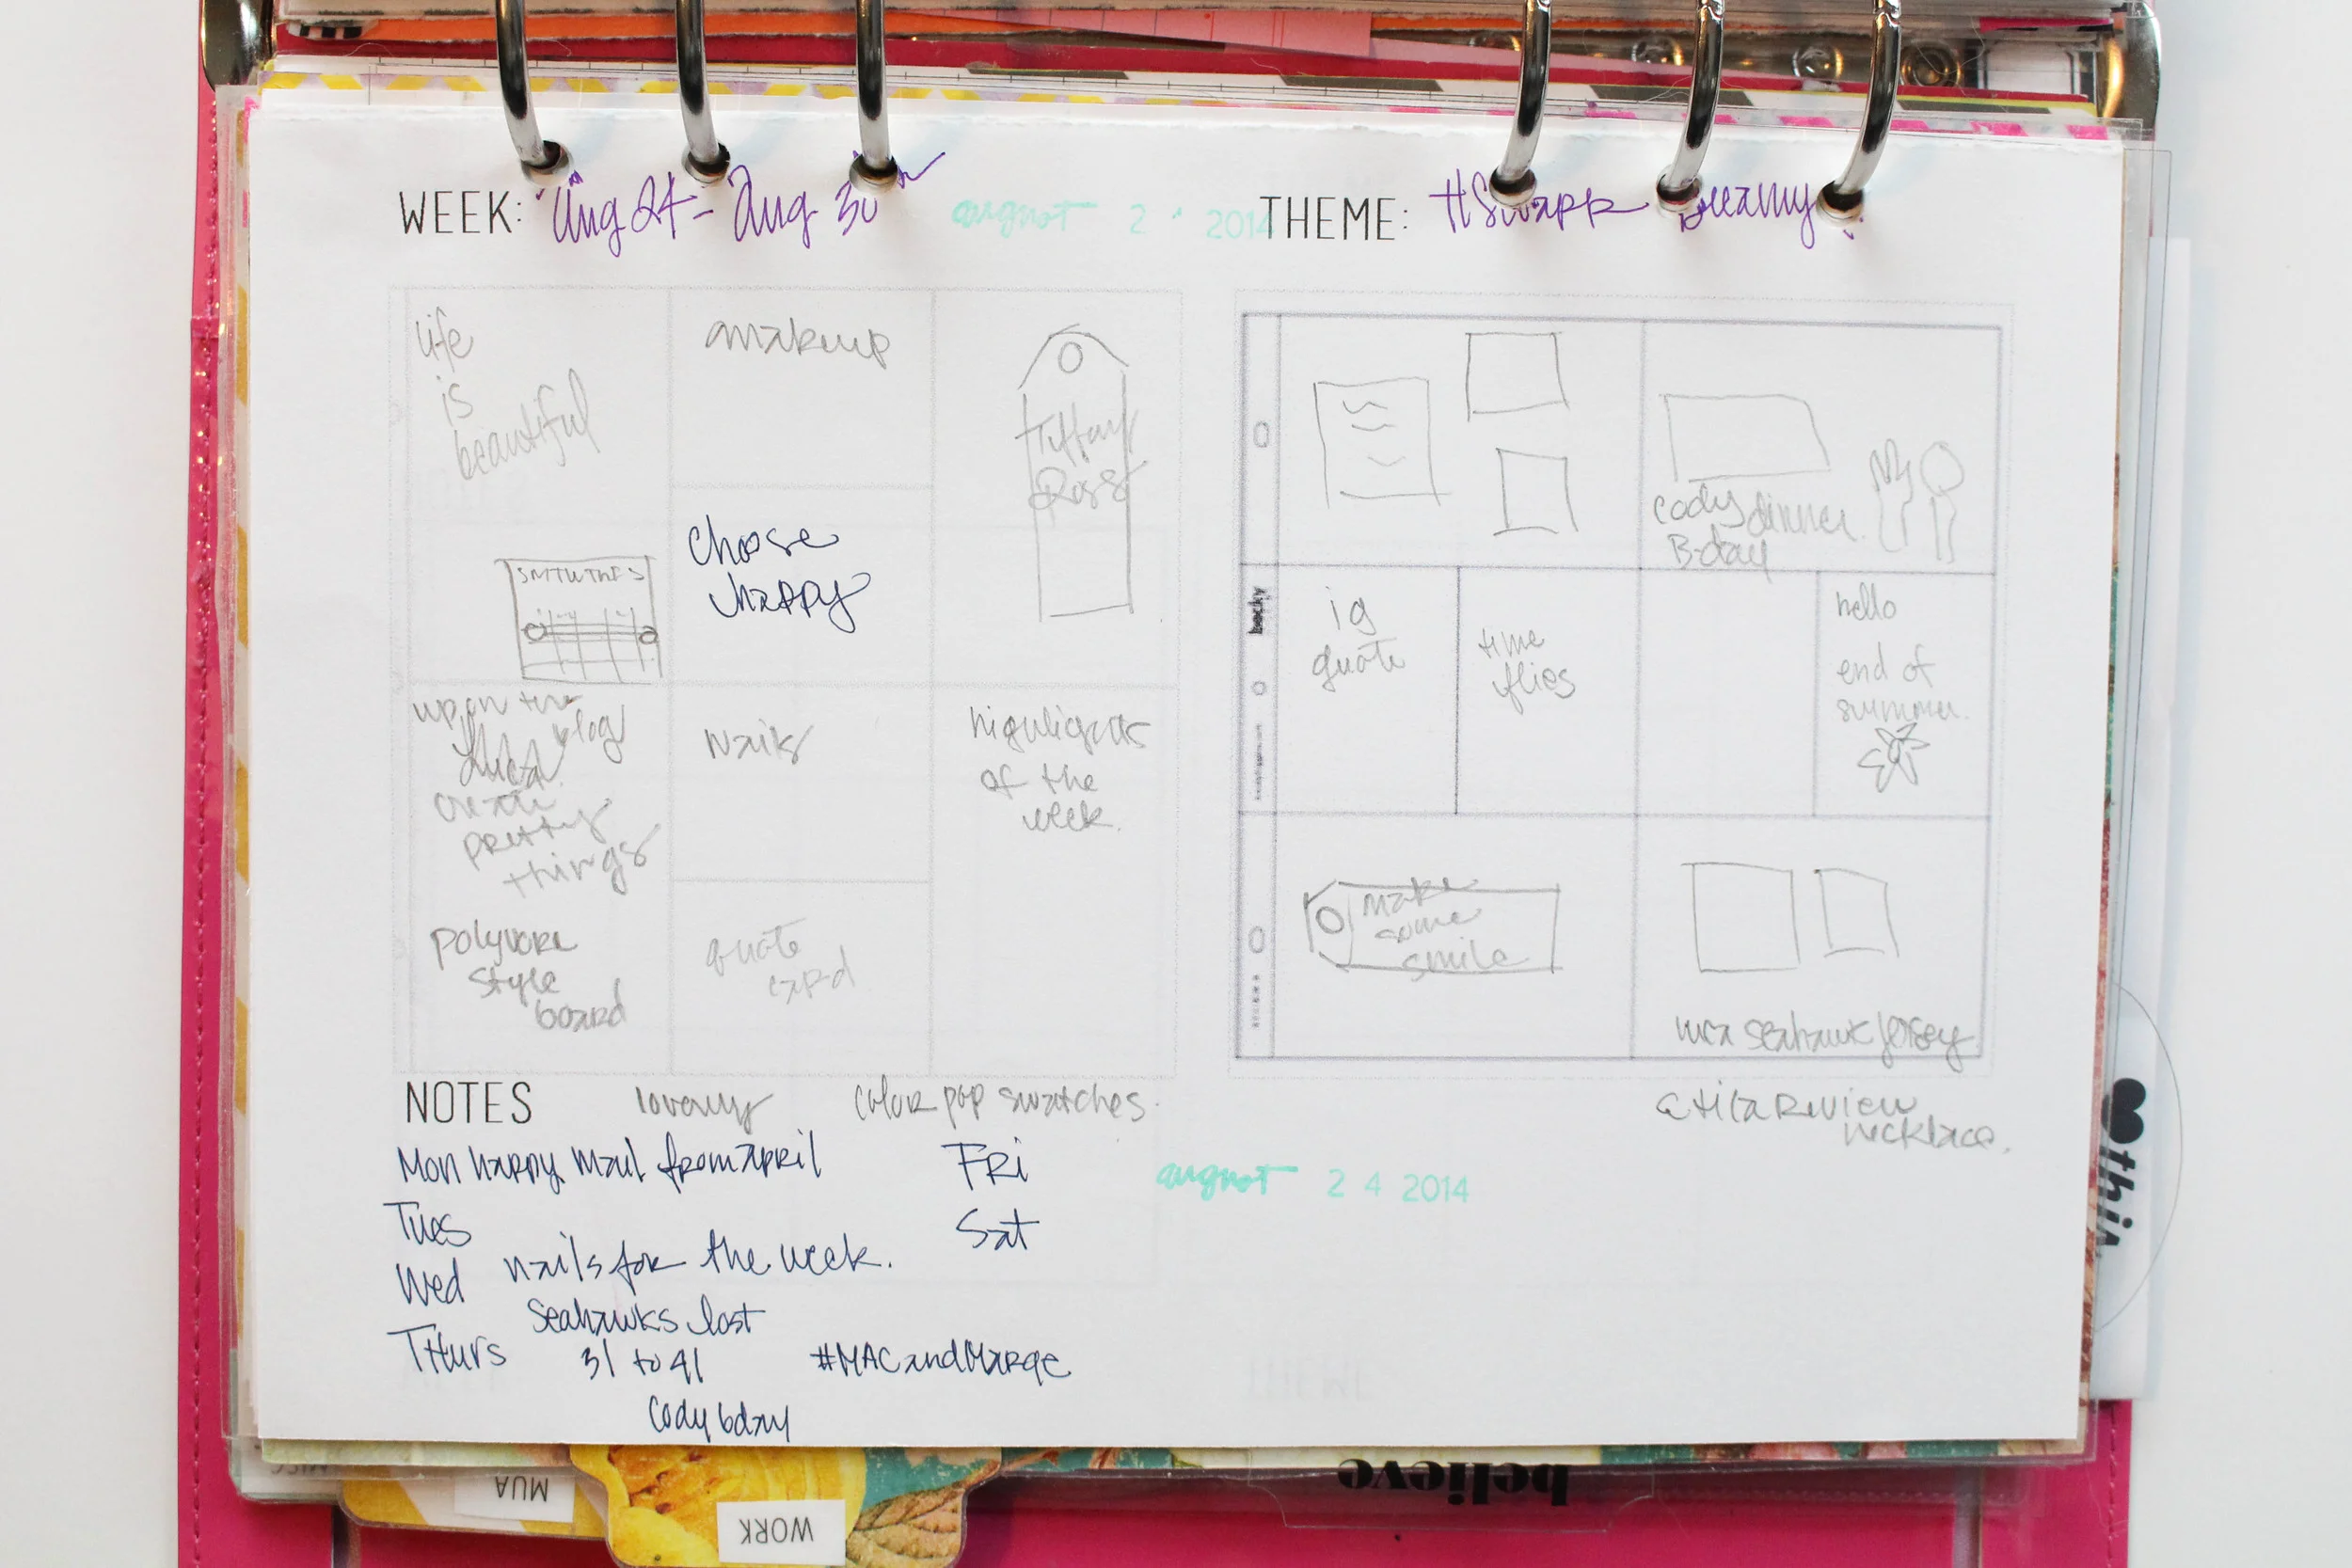 WEEK: Aug 24 - Aug 30
august 2 2014
THEME: #Swapp Dreamy
life
is
beautiful
SMTWTHFS
makeup
choose
happy
Tiffany
Ross
upon the
blog
create
pretty
things
polyvore
style
board
nails
quote
card
highlights
of the
week.
cody dinner.
B-day
ig
quote
becky
time
flies
hello
end of
summer.
make
some
smile
seahawk jersey
NOTES
color pop swatches.
Review
necklace.
Mon happy mail from april
Tues
Wed nails for the week.
Seahawks lost
Thurs 31 to 41
#MACandMarge
Cody bday
Fri
Sat
august 24 2014
this
believe
MUA
WORK